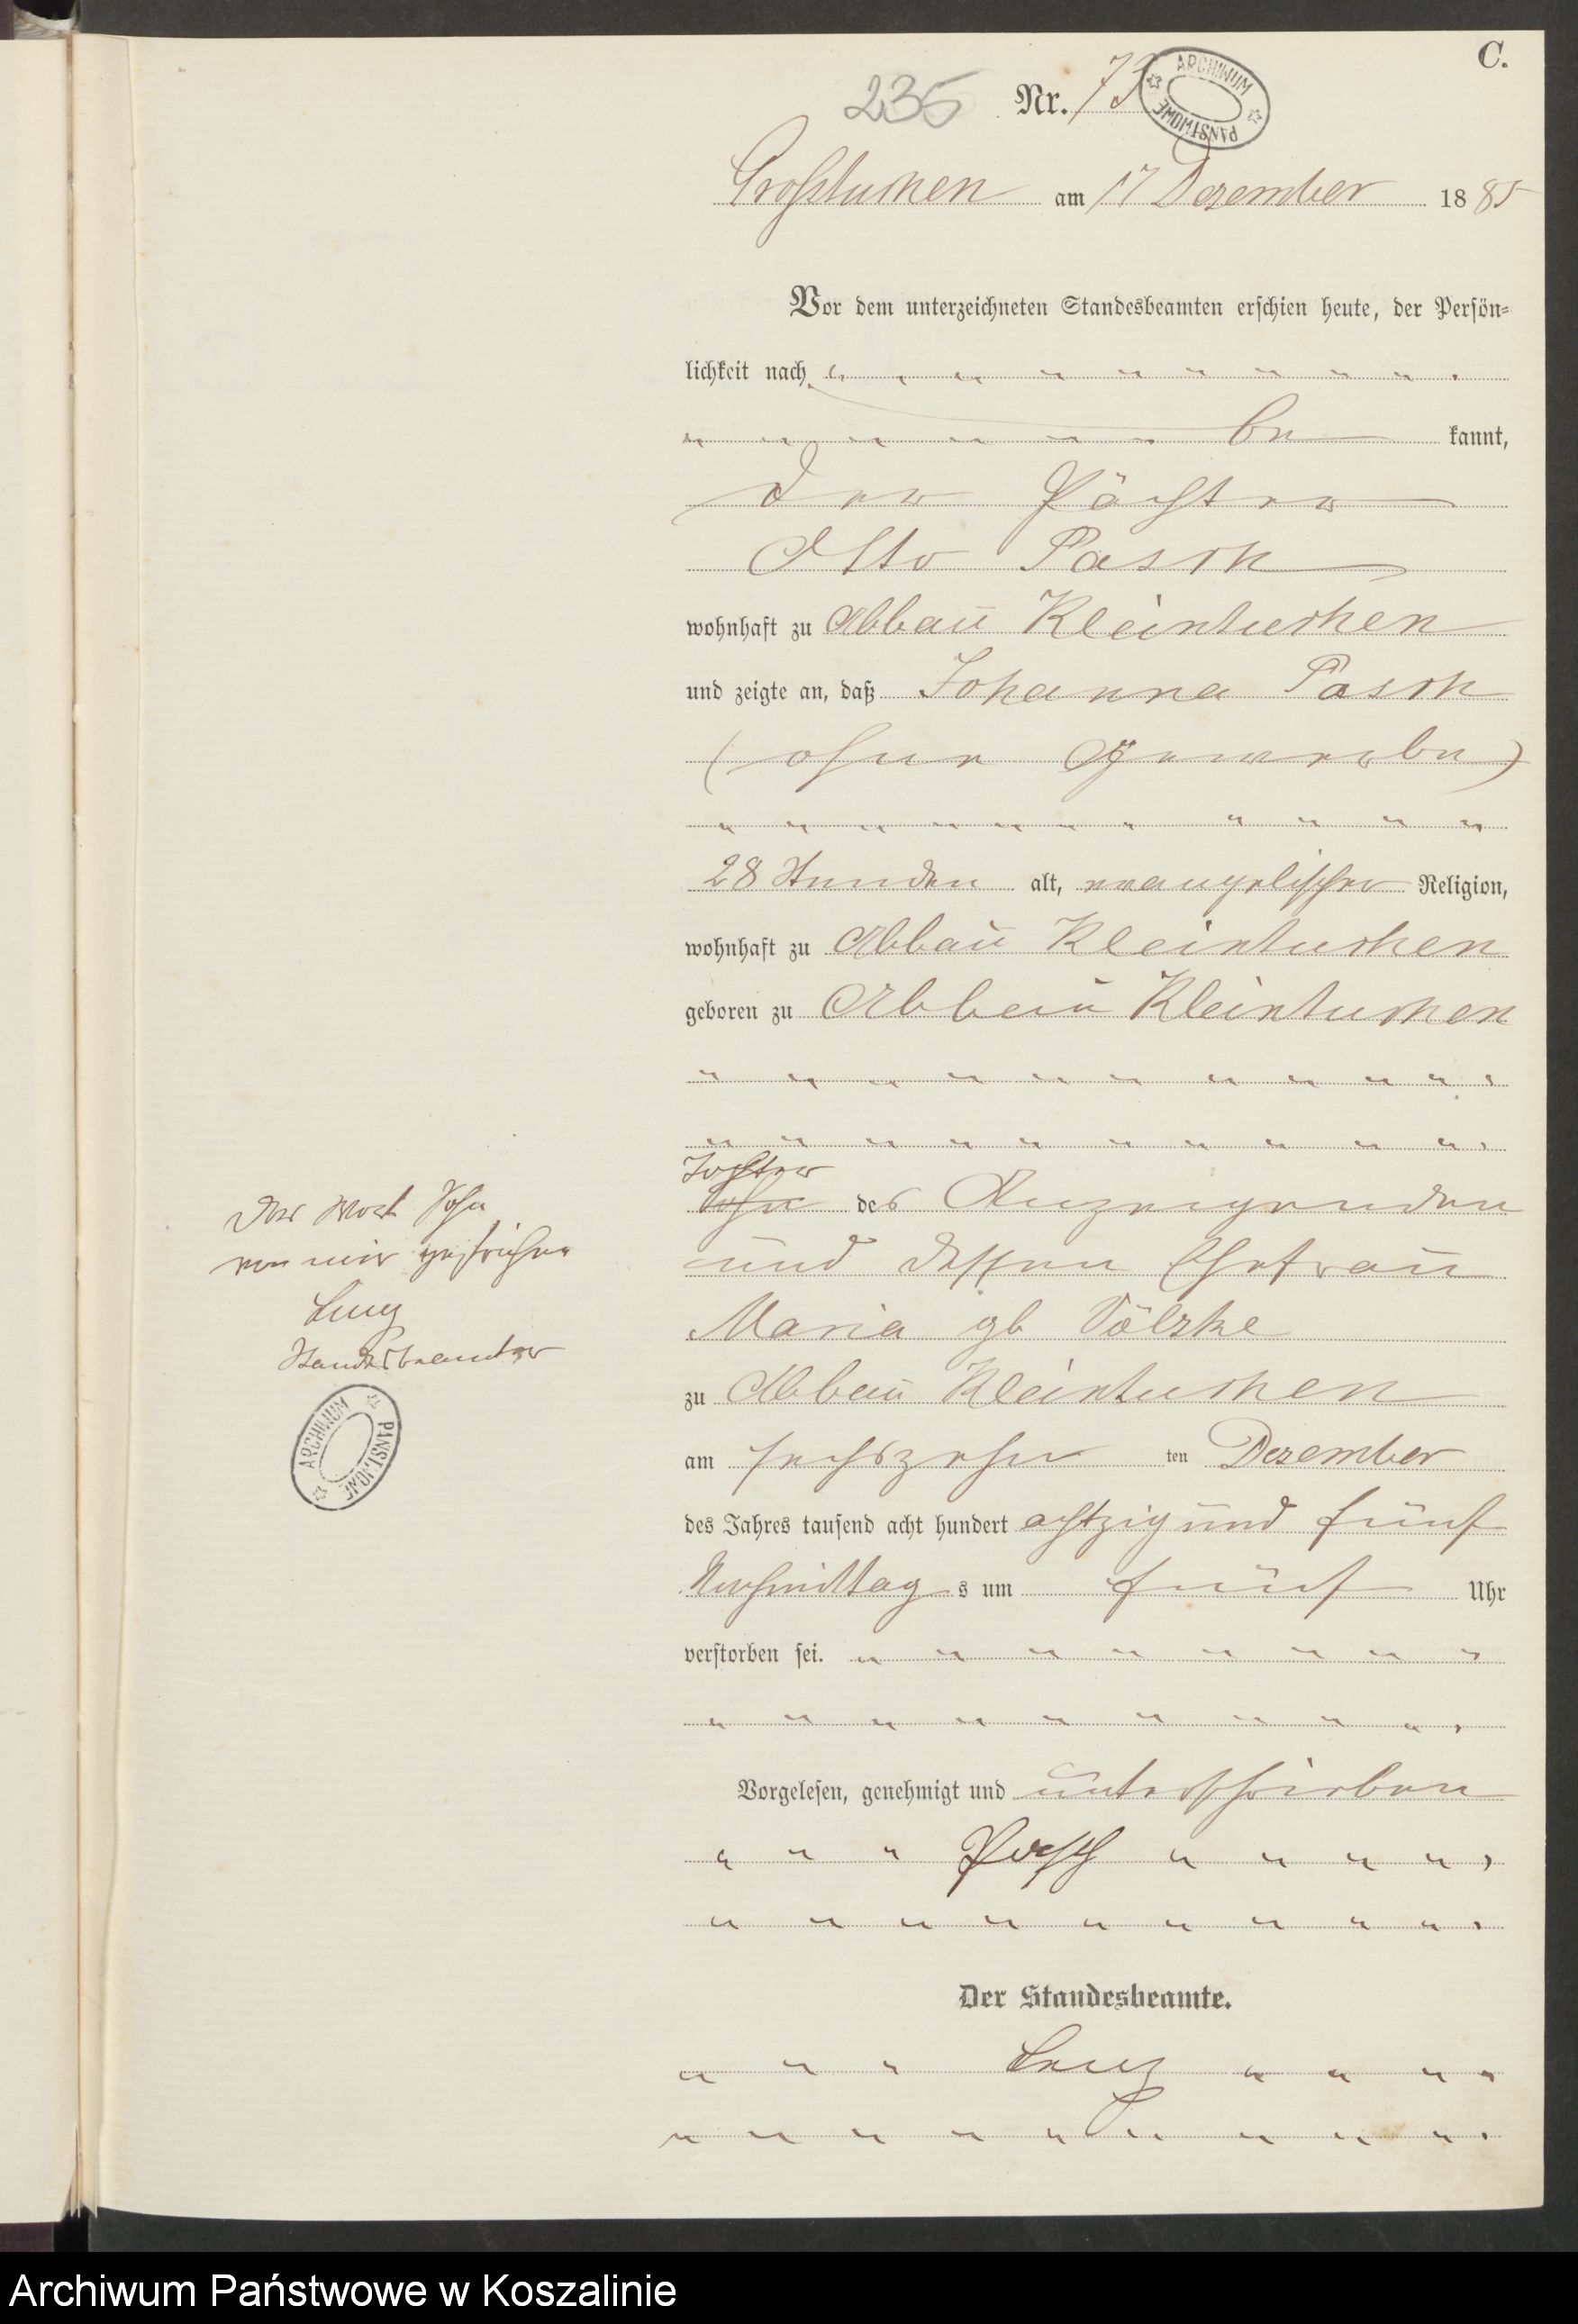 C.
235 Nr. 73
ARCHIWUM PAŃSTWOWE
Grosstuchen am 17 Dezember 1885
Vor dem unterzeichneten Standesbeamten erschien heute, der Persön-
lichkeit nach
be kannt,
der Pächter
Otto Pasch
wohnhaft zu Abbau Kleintuchen
und zeigte an, daß Johanna Pasch
(ohne Gewerbe)
28 Stunden alt, evangelischer Religion,
wohnhaft zu Abbau Kleintuchen
geboren zu Abbau Kleintuchen
Tochter
Sohn des Anzeigenden
und dessen Ehefrau
Maria gb Völzke
zu Abbau Kleintuchen
am sechszehn ten Dezember
des Jahres tausend acht hundert achtzig und fünf
Nachmittag s um fünf Uhr
verstorben sei.
Vorgelesen, genehmigt und unterschrieben
Pasch
Der Standesbeamte.
Lenz
Das Wort Sohn
von mir gestrichen
Lenz
Standesbeamter
ARCHIWUM PAŃSTWOWE
Archiwum Państwowe w Koszalinie